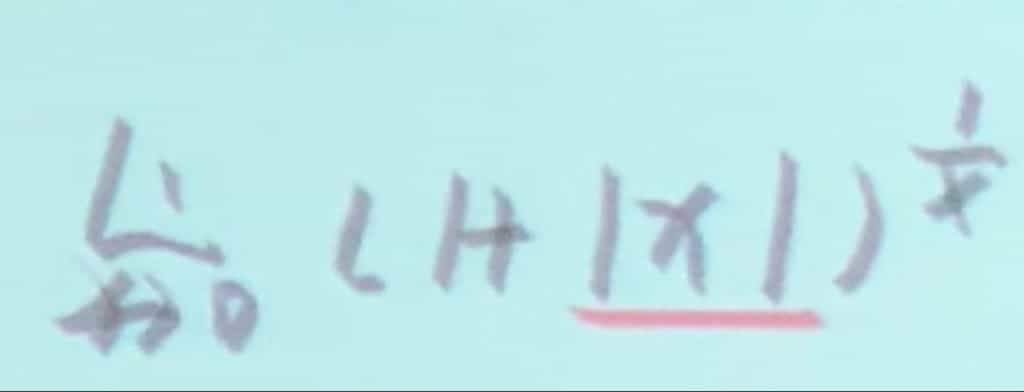 lim_{x→0} (1+|x|)^{1/x}